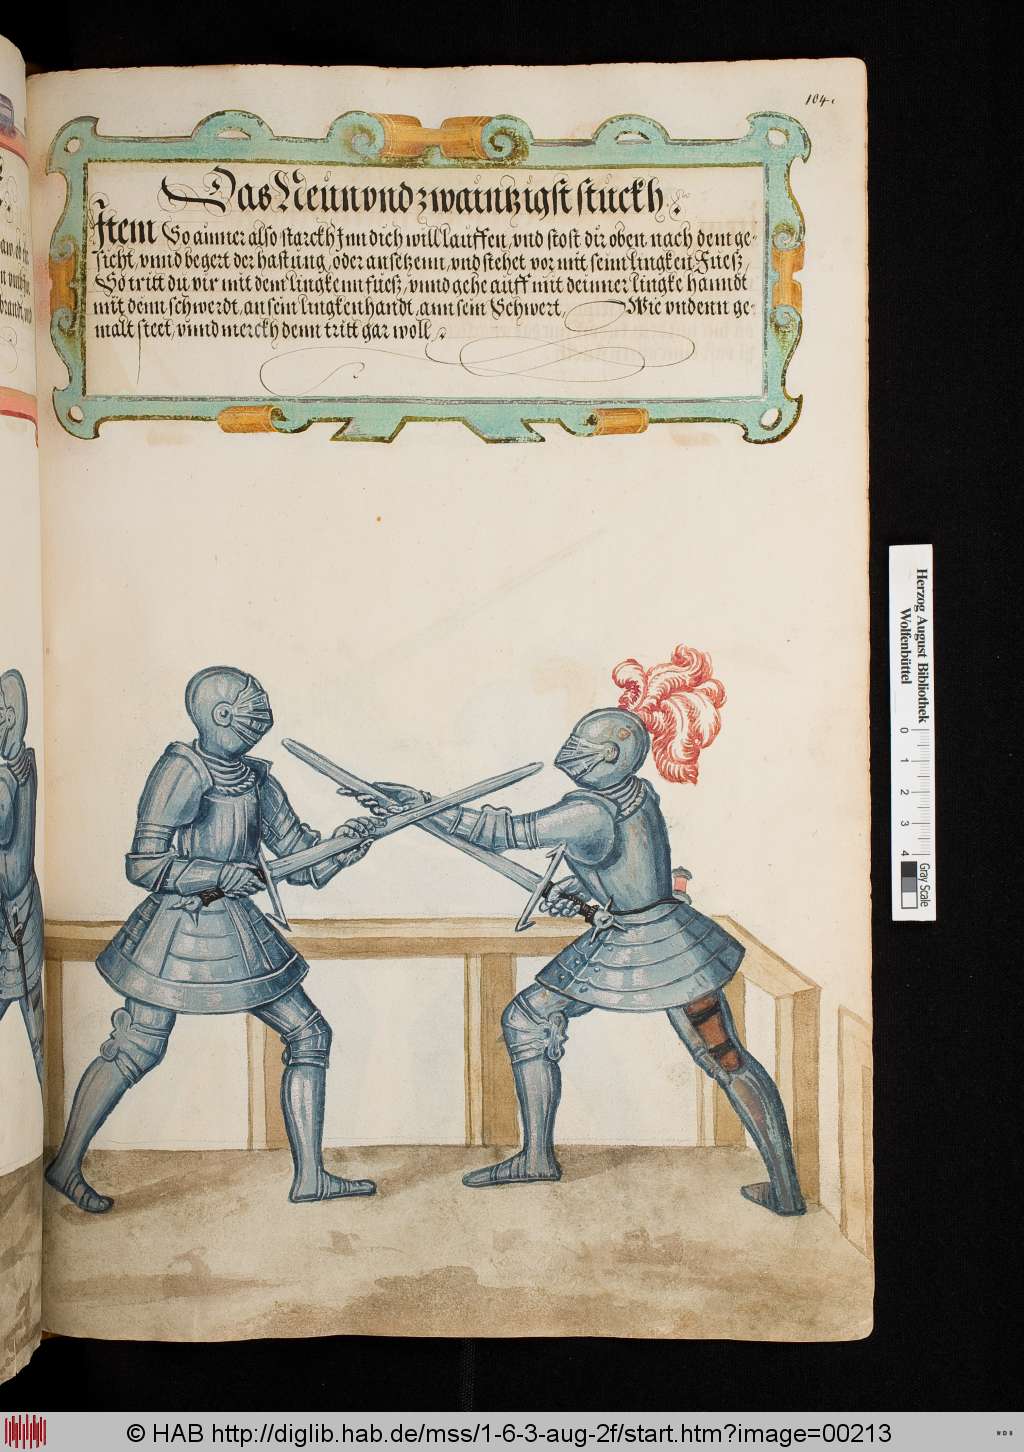 104.
Das Neun vnd zwaintzigst stuckh.
Item So ainner also starckh Inn dich will lauffen, vnd stost dir oben nach dem ge-
sicht, vnnd begert der hastung, oder ansetzenn, vnd stehet vor mit seinn lingken Fuesz,
So tritt du vir mit dem lingkenn fuesz, vnnd gehe auff mit deinner lingke hanndt
mit denn schwerdt, an sein lingken handt, ann sein Schwert, Wie vndenn ge-
malt steet, vnnd merckh denn tritt gar woll.
Herzog August Bibliothek
Wolfenbüttel
0 1 2 3 4
Gray Scale
© HAB http://diglib.hab.de/mss/1-6-3-aug-2f/start.htm?image=00213